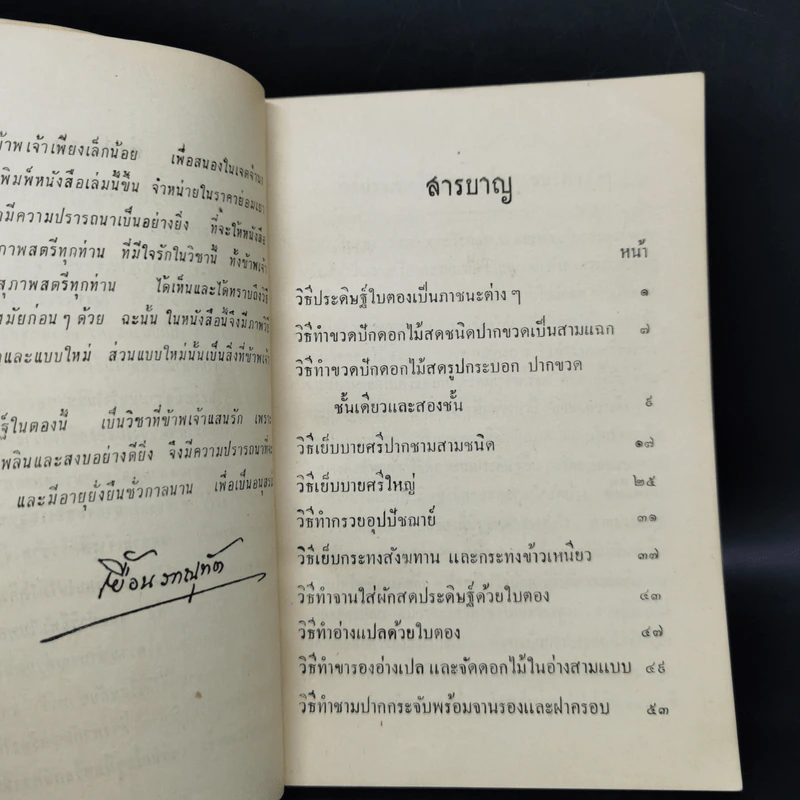 ข้าพเจ้าเพียงเล็กน้อย เพื่อสนองในเจตจำนง
พิมพ์หนังสือเล่มนี้ขึ้น จำหน่ายในราคาย่อมเยา
มีความปรารถนาเป็นอย่างยิ่ง ที่จะให้หนังสือ
ภาพสตรีทุกท่าน ที่มีใจรักในวิชานี้ ทั้งข้าพเจ้า
สุภาพสตรีทุกท่าน ได้เห็นและได้ทราบถึงวิธี
สมัยก่อน ๆ ด้วย ฉะนั้น ในหนังสือนี้จึงมีภาพวิธี
และแบบใหม่ ส่วนแบบใหม่นั้นเป็นสิ่งที่ข้าพเจ้า
ฐ์ใบตองนี้ เป็นวิชาที่ข้าพเจ้าแสนรัก เพราะ
พลินและสงบอย่างดียิ่ง จึงมีความปรารถนาที่จะ
และมีอายุยั่งยืนชั่วกาลนาน เพื่อเป็นอนุสรณ์
เยื้อน ภาณุทัต
สารบาญ
หน้า
วิธีประดิษฐ์ใบตองเป็นภาชนะต่าง ๆ ๑
วิธีทำขวดปักดอกไม้สดชนิดปากขวดเป็นสามแฉก ๗
วิธีทำขวดปักดอกไม้สดรูปกระบอก ปากขวด
ชั้นเดียวและสองชั้น ๙
วิธีเย็บบายศรีปากชามสามชนิด ๑๗
วิธีเย็บบายศรีใหญ่ ๒๕
วิธีทำกรวยอุปัชฌาย์ ๓๑
วิธีเย็บกระทงสังฆทาน และกระทงข้าวเหนียว ๓๗
วิธีทำจานใส่ผักสดประดิษฐ์ด้วยใบตอง ๔๓
วิธีทำอ่างแปลด้วยใบตอง ๔๗
วิธีทำขารองอ่างเปล และจัดดอกไม้ในอ่างสามแบบ ๔๙
วิธีทำชามปากกระจับพร้อมจานรองและฝาครอบ ๕๓